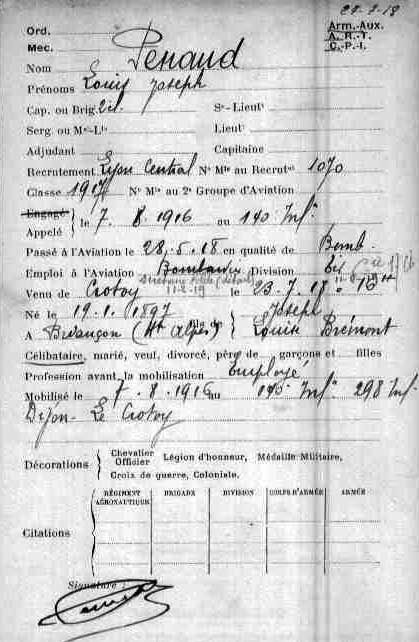 29-7-18
Ord.
Arm.-Aux.
Mec.
A. R. T.
C. P. I.
Nom Penaud
Prénoms Louis Joseph
Cap. ou Brig. 2cl. Sˢ-Lieutᵗ
Serg. ou Mᵃˡ-Lˢ Lieutᵗ
Adjudant Capitaine
Recrutement Lyon Central Nº Mˡᵉ au Recrutᵗ 1070
Classe 1917 Nº Mˡᵉ au 2ᵉ Groupe d'Aviation
Engagé
Appelé le 7. 8. 1916 au 140 Infⁱᵉ
Passé à l'Aviation le 28.5.18 en qualité de Bomb.
Emploi à l'Aviation Bombard. Division
11-2-19
Venu de Crotoy le 23.7.18
Né le 19.1.1897 fils de Joseph
A Briançon (Htes Alpes) Louise Brémont
Célibataire, marié, veuf, divorcé, père de garçons et filles
Profession avant la mobilisation Employé
Mobilisé le 7.8.1916 au 140 Infⁱᵉ 298 Infⁱᵉ
Dijon - Le Crotoy
Décorations { Chevalier Officier Légion d'honneur, Médaille Militaire,
Croix de guerre, Coloniale.
Citations
RÉGIMENT AÉRONAUTIQUE BRIGADE DIVISION CORPS D'ARMÉE ARMÉE
Signature :